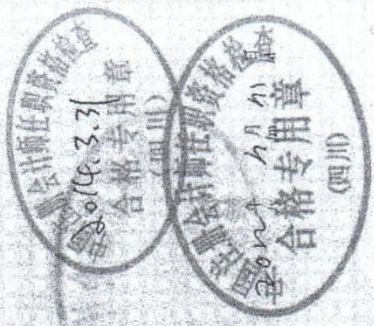 中国注册会计师任职资格检查
2014.3.31
合格专用章
(四川)
中国注册会计师任职资格检查
合格专用章
(四川)